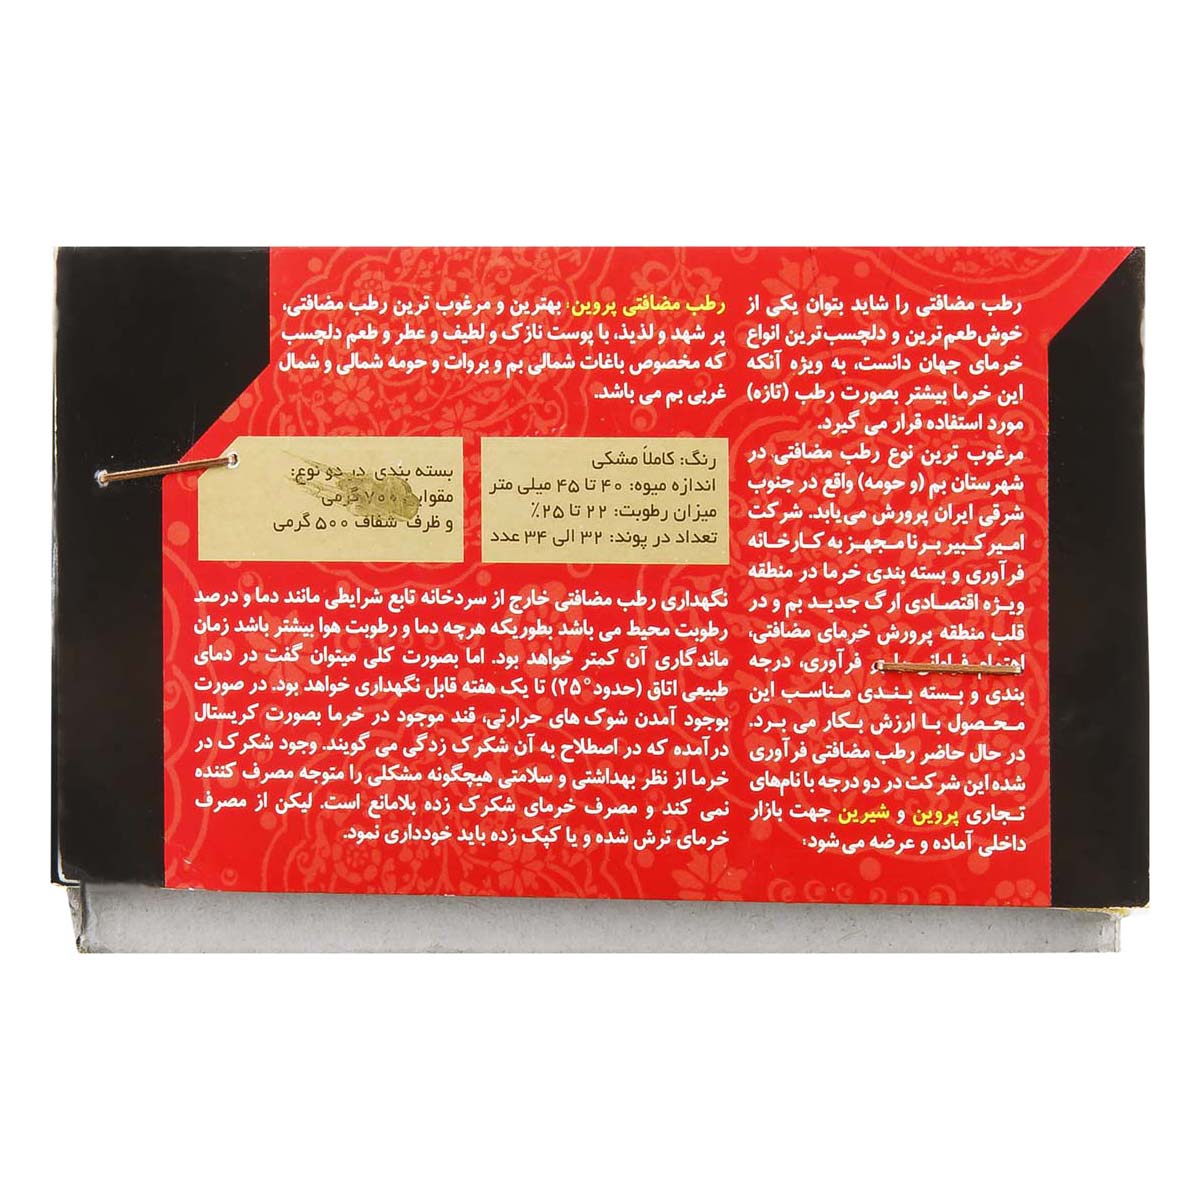 رطب مضافتی را شاید بتوان یکی از
خوش‌طعم‌ترین و دلچسب‌ترین انواع
خرمای جهان دانست، به ویژه آنکه
این خرما بیشتر بصورت رطب (تازه)
مورد استفاده قرار می گیرد.
مرغوب ترین نوع رطب مضافتی در
شهرستان بم (و حومه) واقع در جنوب
شرقی ایران پرورش می‌یابد. شرکت
امیر کبیر برنا مجهز به کارخانه
فرآوری و بسته بندی خرما در منطقه
ویژه اقتصادی ارگ جدید بم و در
قلب منطقه پرورش خرمای مضافتی،
فرآوری، درجه
بندی و بسته بندی مناسب این
محصول با ارزش بکار می برد.
در حال حاضر رطب مضافتی فرآوری
شده این شرکت در دو درجه با نام‌های
تجاری پروین و شیرین جهت بازار
داخلی آماده و عرضه می‌شود:
رطب مضافتی پروین: بهترین و مرغوب ترین رطب مضافتی،
پر شهد و لذیذ، با پوست نازک و لطیف و عطر و طعم دلچسب
که مخصوص باغات شمالی بم و بروات و حومه شمالی و شمال
غربی بم می باشد.
رنگ: کاملاً مشکی
اندازه میوه: ۴۰ تا ۴۵ میلی متر
میزان رطوبت: ۲۲ تا ۲۵٪
تعداد در پوند: ۳۲ الی ۳۴ عدد
بسته بندی در دو نوع:
۷۰۰ گرمی
و ظرف شفاف ۵۰۰ گرمی
نگهداری رطب مضافتی خارج از سردخانه تابع شرایطی مانند دما و درصد
رطوبت محیط می باشد بطوریکه هرچه دما و رطوبت هوا بیشتر باشد زمان
ماندگاری آن کمتر خواهد بود. اما بصورت کلی میتوان گفت در دمای
طبیعی اتاق (حدود ۲۵°) تا یک هفته قابل نگهداری خواهد بود. در صورت
بوجود آمدن شوک های حرارتی، قند موجود در خرما بصورت کریستال
درآمده که در اصطلاح به آن شکرک زدگی می گویند. وجود شکرک در
خرما از نظر بهداشتی و سلامتی هیچگونه مشکلی را متوجه مصرف کننده
نمی کند و مصرف خرمای شکرک زده بلامانع است. لیکن از مصرف
خرمای ترش شده و یا کپک زده باید خودداری نمود.